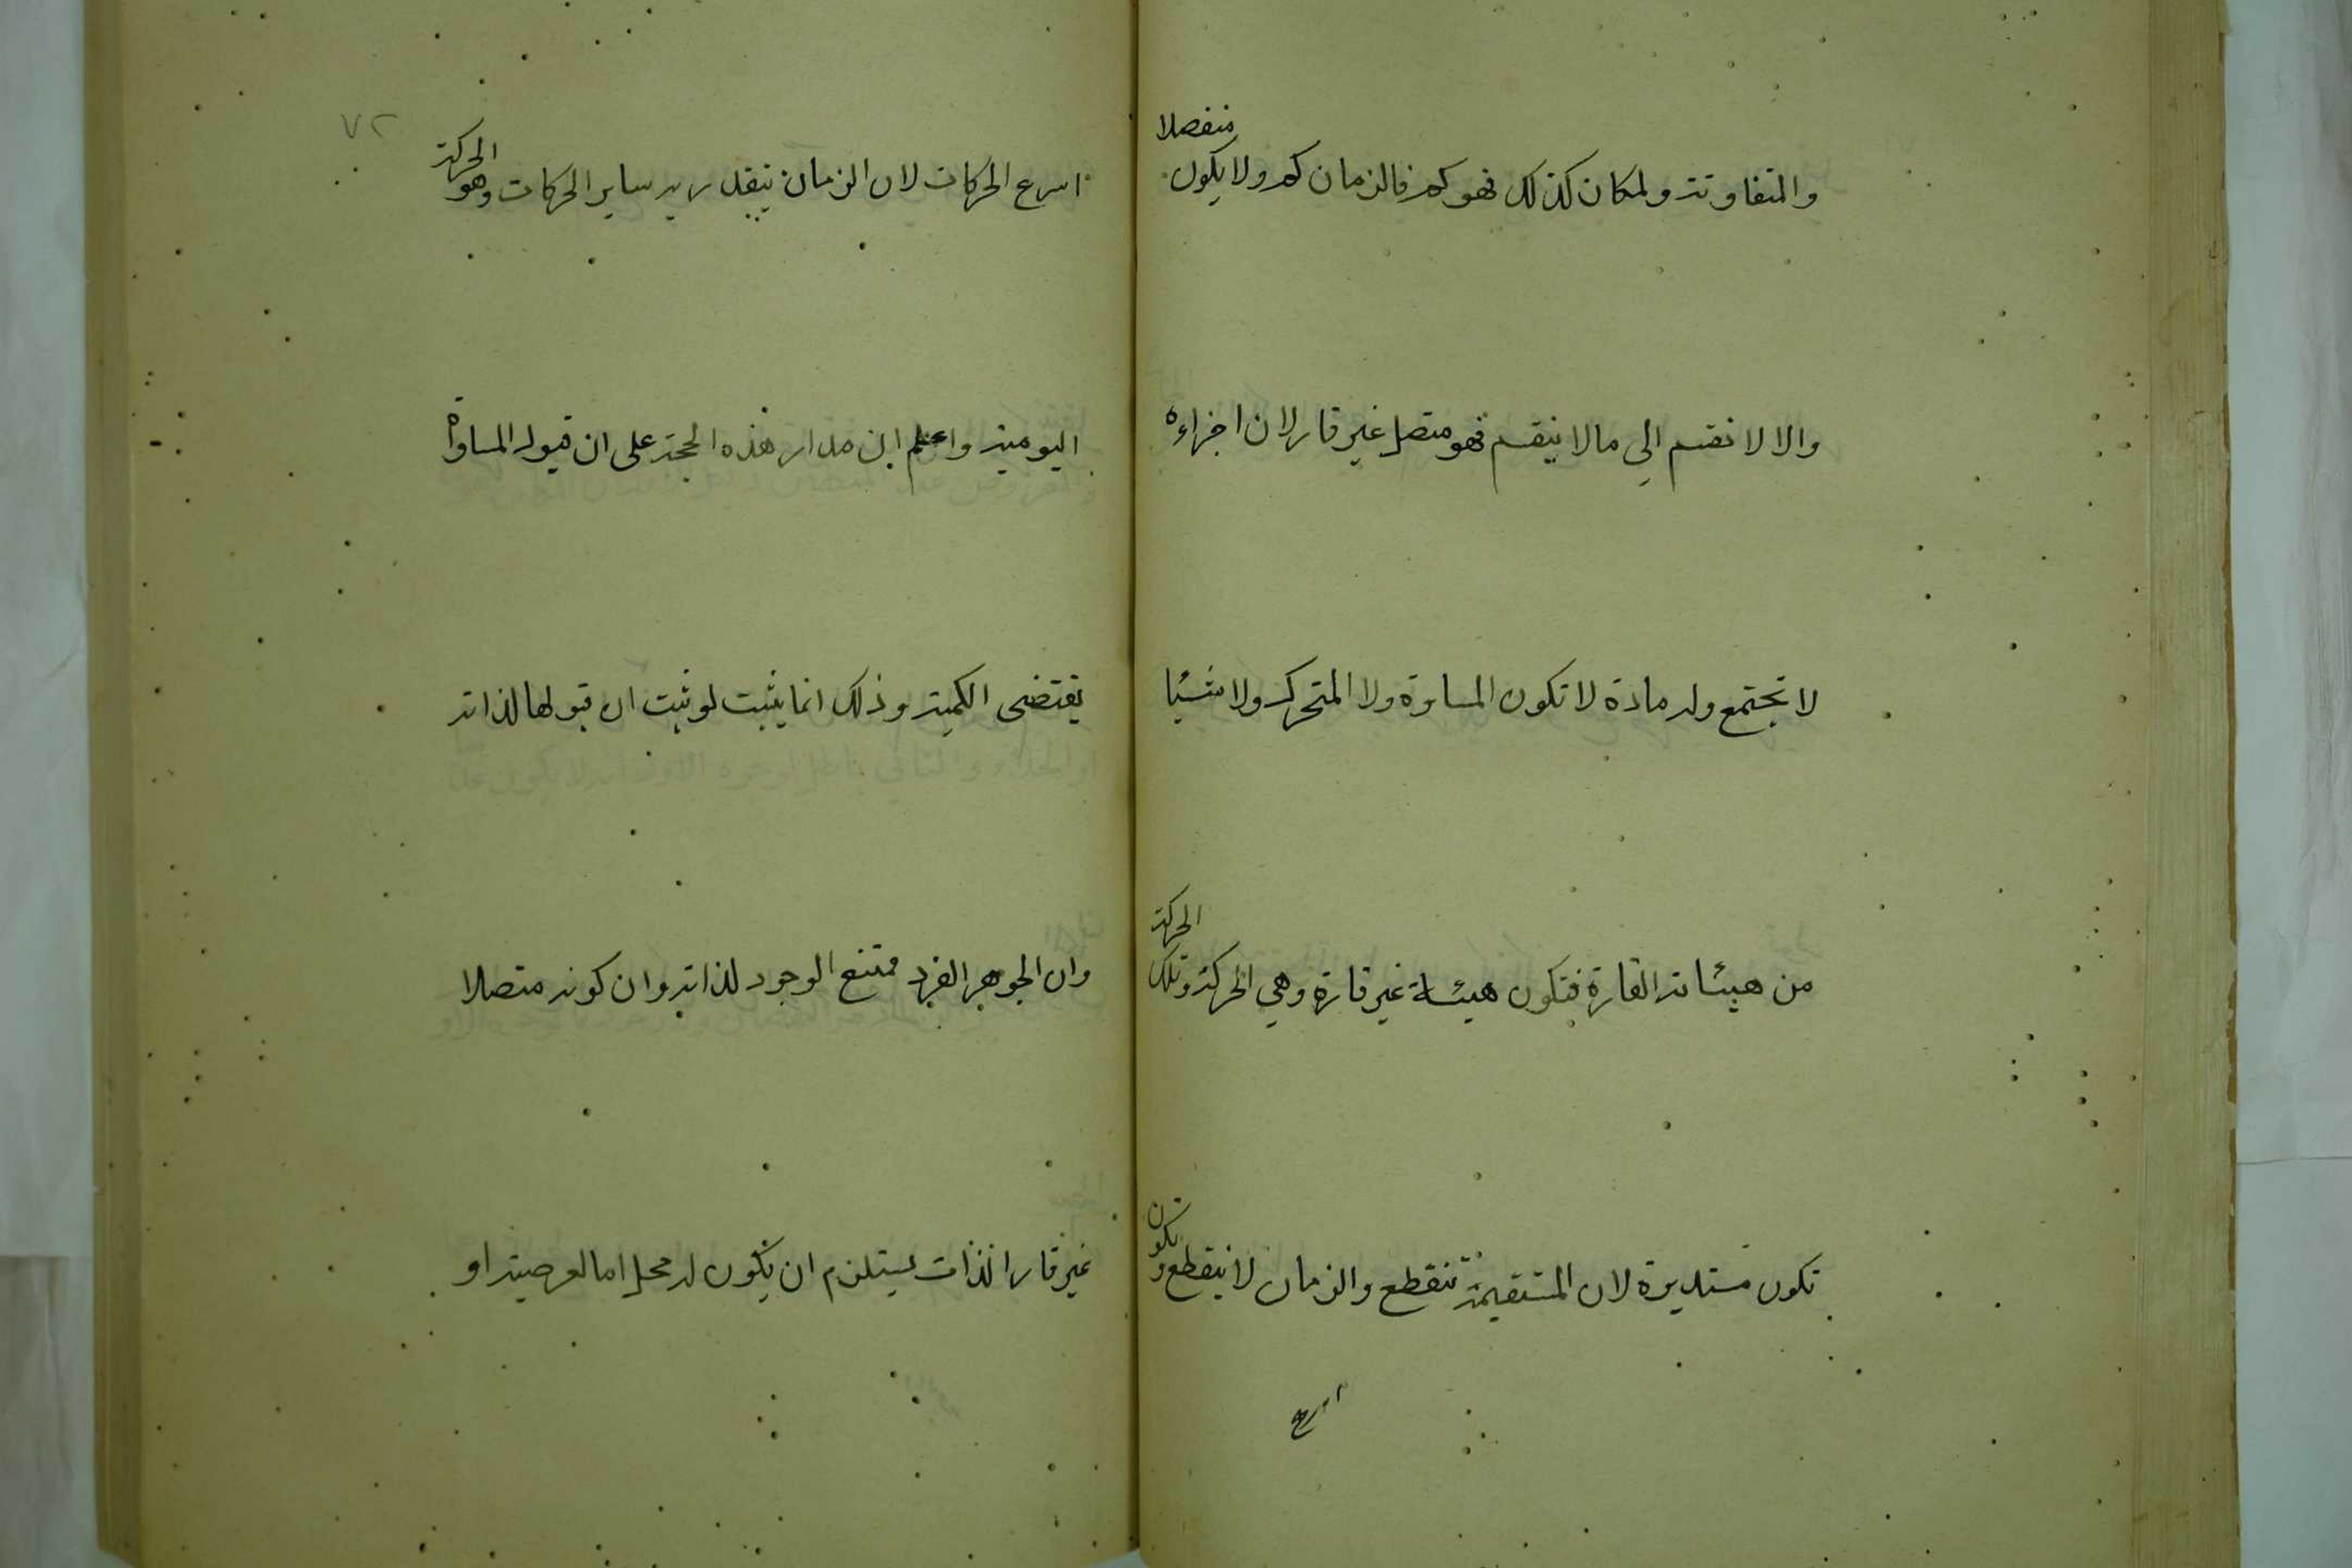 والمتفاوتة ولمكان كذلك فهو كم فالزمان كم ولا يكون منفصلا
والا لانقسم الى ما لا ينقسم فهو متصل غير قار لان اجزاءه
لا تجتمع وله مادة لا تكون المساوة ولا المتحرك ولا شيئا
من هيئاته القارة فتكون هيئة غير قارة وهي الحركة وتلك الحركة
تكون مستديرة لان المستقيمة تنقطع والزمان لا ينقطع وتكون
اسرع
٧٢
اسرع الحركات لان الزمان يتقدر به ساير الحركات وهو الحركة
اليومية واعلم ان مدار هذه الحجة على ان قبول المساواة
يقتضى الكمية وذلك انما يثبت لو ثبت ان قبولها لذاته
وان الجوهر الفرد ممتنع الوجود لذاته وان كونه متصلا
غير قار الذات يستلزم ان يكون له محل اما لعرضيته او